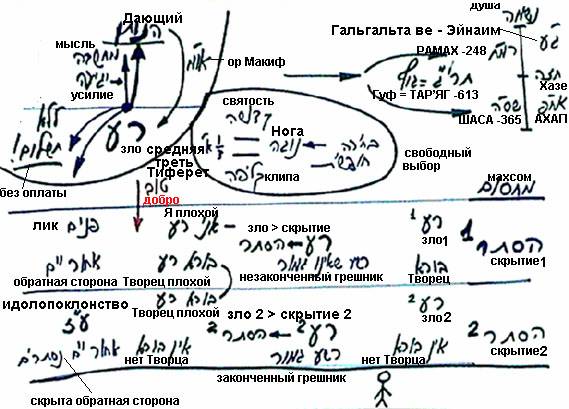 Дающий
הנותן
душа
נשמה
Гальгальта ве - Эйнаим
мысль
מחשבה
ор Макиф
РАМАХ -248
רמ"ח
ג"ע
усилие
תרי"ג = גוף
חזה
Хазе
Гуф = ТАР'ЯГ -613
святость
קדושה
ללא
תשלום!
רע
Нога
נוגה
בחירה
חופשית
ШАСА -365
שס"ה
אח"פ
АХАП
зло
средняя
треть
Тиферет
1/3 ת"ת
свободный
выбор
без оплаты
клипа
קליפה
טוב
добро
махсом
מחסום
Я плохой
лик
פנים
אני רע
зло > скрытие
הסתר ← רע
רע 1
зло1
הסתר 1
скрытие1
רשע שאינו גמור
обратная сторона
אחוריים
Творец плохой
בורא רע
незаконченный грешник
Творец
בורא
идолопоклонство
ע"ז
Творец плохой
בורא רע
зло 2 > скрытие 2
הסתר 2 ← רע 2
רע 2
зло2
הסתר 2
скрытие2
אחוריים נסתרים
אין בורא
нет Творца
רשע גמור
нет Творца
אין בורא
законченный грешник
скрыта обратная сторона